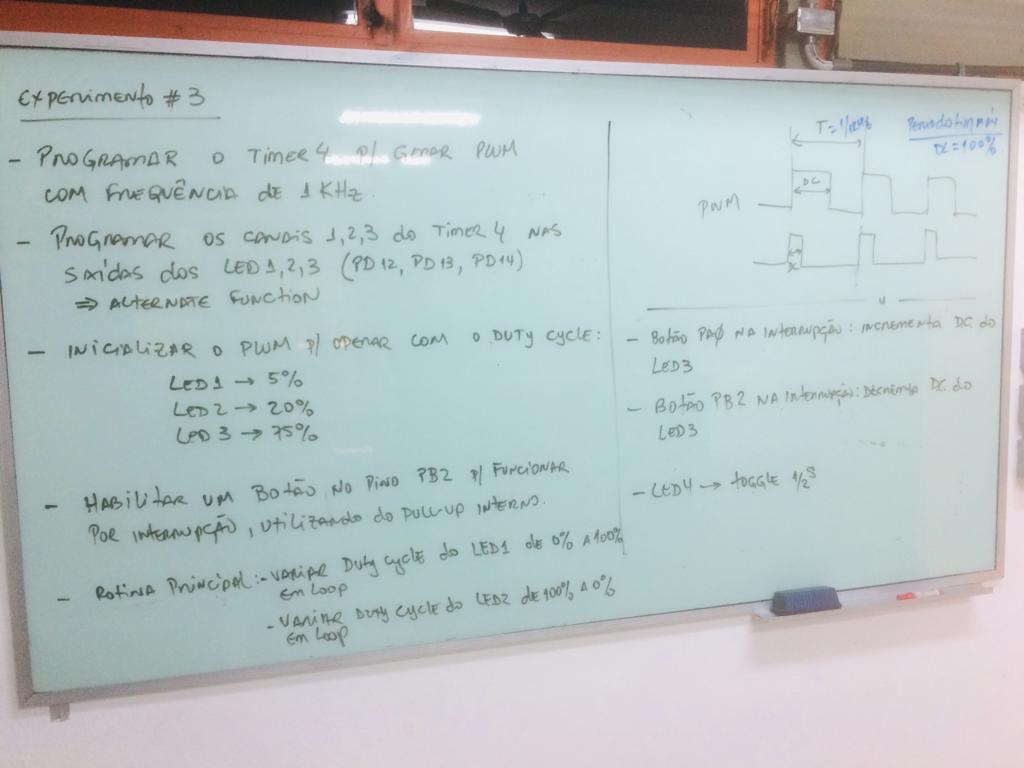 Experimento #3
- Programar o Timer 4 p/ gerar PWM
com frequência de 1 KHz.
- Programar os canais 1,2,3 do Timer 4 nas
saídas dos LED 1,2,3 (PD12, PD13, PD14)
⇒ Alternate Function
- Inicializar o PWM p/ operar com o Duty Cycle:
LED1 → 5%
LED2 → 20%
LED3 → 75%
- Habilitar um Botão no Pino PB2 p/ funcionar
por interrupção, utilizando do pull-up interno.
- Rotina Principal: - Variar Duty cycle do LED1 de 0% a 100%
em loop
- Variar Duty cycle do LED2 de 100% a 0%
em loop
T =
DC = 100%
DC
PWM
DC
- Botão PA0 na interrupção: incrementa DC do
LED3
- Botão PB2 na interrupção: DC do
LED3
- LED4 → toggle 1/2 s